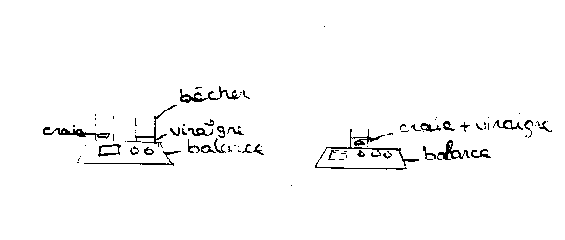 bêcher
craie
vinaigre
balance
craie + vinaigre
balance